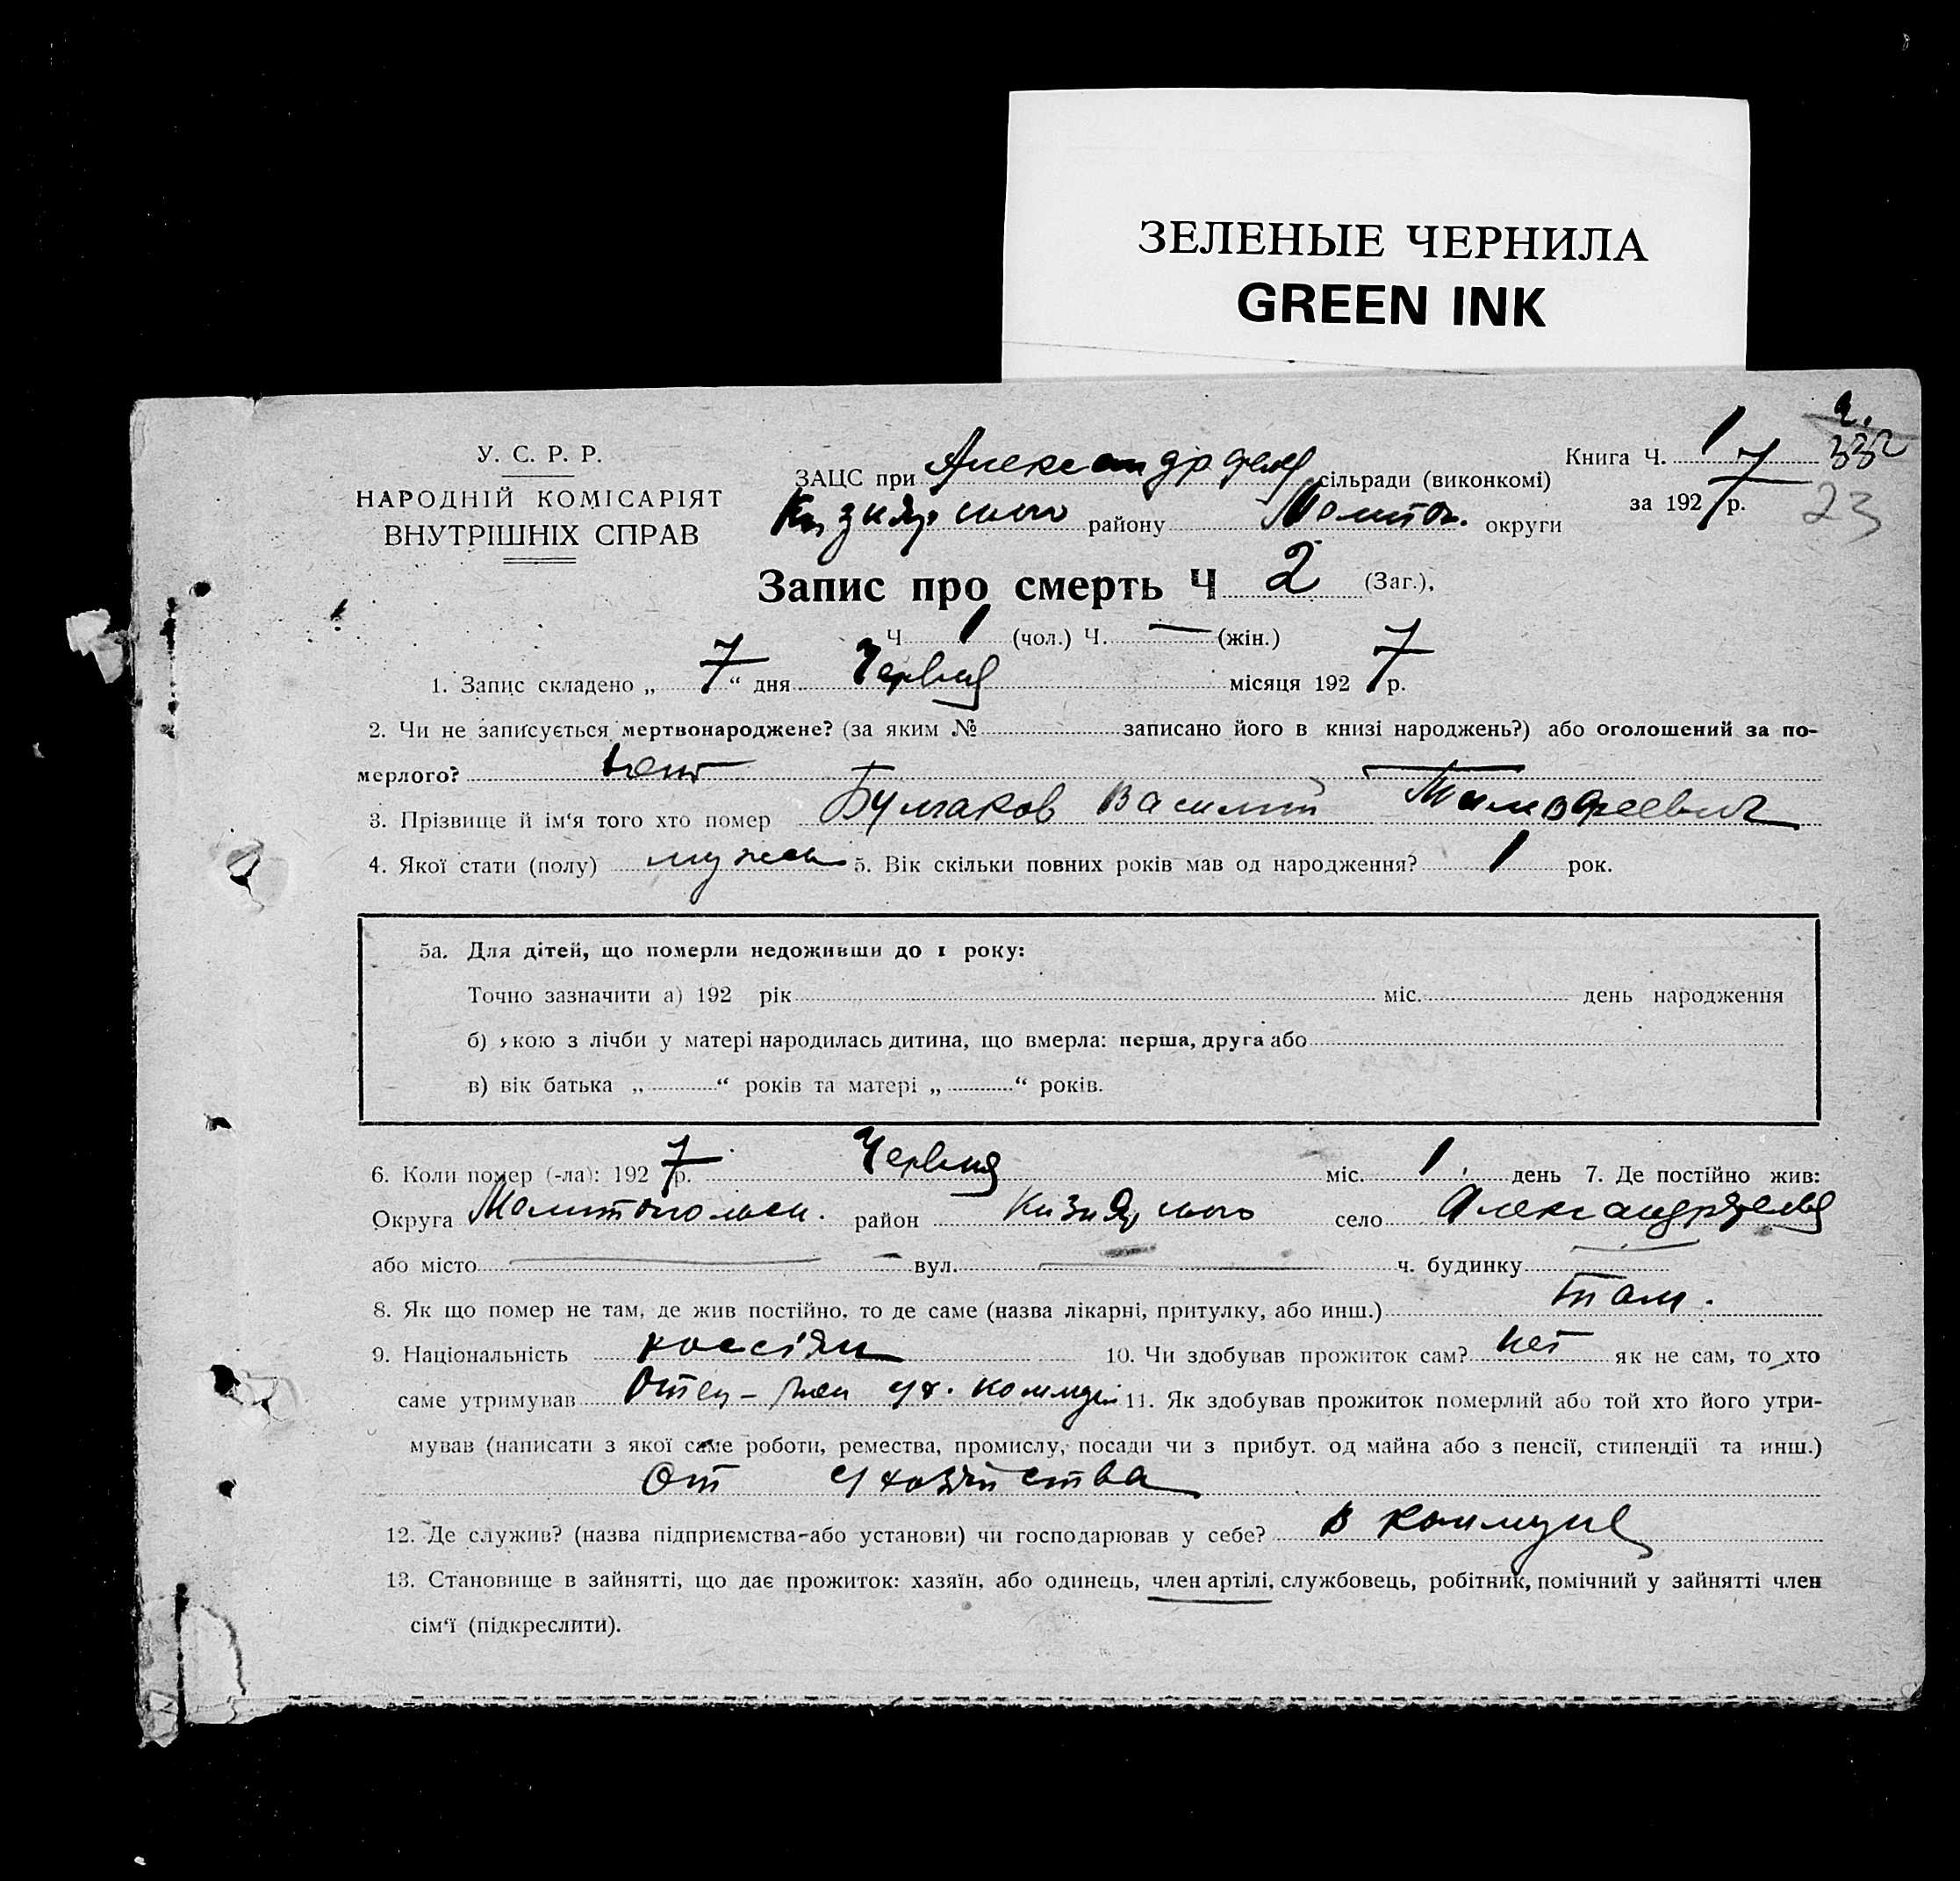 ЗЕЛЕНЫЕ ЧЕРНИЛА
GREEN INK
У. С. Р. Р.
НАРОДНІЙ КОМІСАРІЯТ
ВНУТРІШНІХ СПРАВ
ЗАЦС при Александрфельд сільради (виконкомі)
Кизиярського району Мелитоп. округи
Книга Ч. 1
за 1927 р.
332
23
Запис про смерть Ч 2 (Заг.),
Ч 1 (чол.) Ч. — (жін.)
1. Запис складено „ 7 “ дня Червня місяця 1927 р.
2. Чи не записується мертвонароджене? (за яким № записано його в книзі народжень?) або оголошений за по-
мерлого? нет
3. Прізвище й ім‘я того хто помер Булгаков Василий Тимофеевич
4. Якої стати (полу) мужск 5. Вік скільки повних років мав од народження? 1 рок.
5а. Для дітей, що померли недоживши до 1 року:
Точно зазначити а) 192 рік міс. день народження
б) якою з лічби у матері народилась дитина, що вмерла: перша, друга або
в) вік батька „ “ років та матері „ “ років.
6. Коли помер (-ла): 1927 р. Червня міс. 1 день 7. Де постійно жив:
Округа Мелитопольск. район Кизиярського село Александрфельд
або місто — вул. — ч. будинку —
8. Як що помер не там, де жив постійно, то де саме (назва лікарні, притулку, або инш.) Там.
9. Національність 10. Чи здобував прожиток сам? нет як не сам, то хто
саме утримував Отец – член с/х. коммун 11. Як здобував прожиток померлий або той хто його утри-
мував (написати з якої саме роботи, ремества, промислу, посади чи з прибут. од майна або з пенсії, стипендії та инш.)
От с/хозяйства
12. Де служив? (назва підприємства або установи) чи господарював у себе? в коммуне
13. Становище в зайнятті, що дає прожиток: хазяїн, або одинець, член артілі, службовець, робітник, помічний у зайнятті член
сім‘ї (підкреслити).